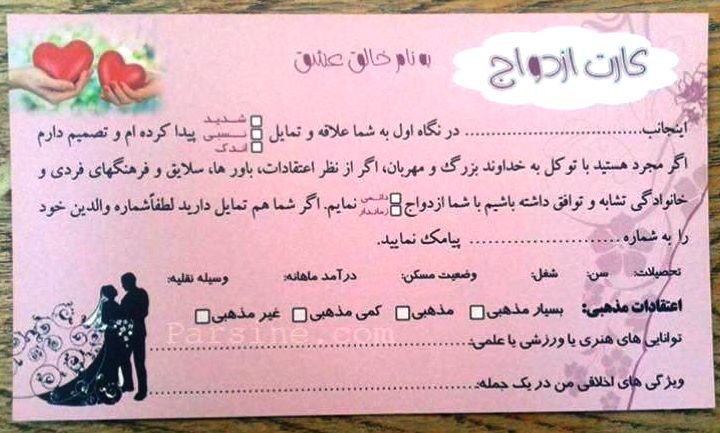 کارت ازدواج
به نام خالق عشق
اینجانب.............................. در نگاه اول به شما علاقه و تمایل □ شدید □ نسبی □ اندک پیدا کرده ام و تصمیم دارم
اگر مجرد هستید با توکل به خداوند بزرگ و مهربان، اگر از نظر اعتقادات، باور ها، سلایق و فرهنگهای فردی و
خانوادگی تشابه و توافق داشته باشیم با شما ازدواج □ دائمی □ زماندار نمایم. اگر شما هم تمایل دارید لطفاًشماره والدین خود
را به شماره...................... پیامک نمایید.
تحصیلات: سن: شغل: وضعیت مسکن: درآمد ماهانه: وسیله نقلیه:
اعتقادات مذهبی: بسیار مذهبی□ مذهبی□ کمی مذهبی□ غیر مذهبی□
توانایی های هنری یا ورزشی یا علمی:......................................................
ویژگی های اخلاقی من در یک جمله:......................................................
Parsine.com